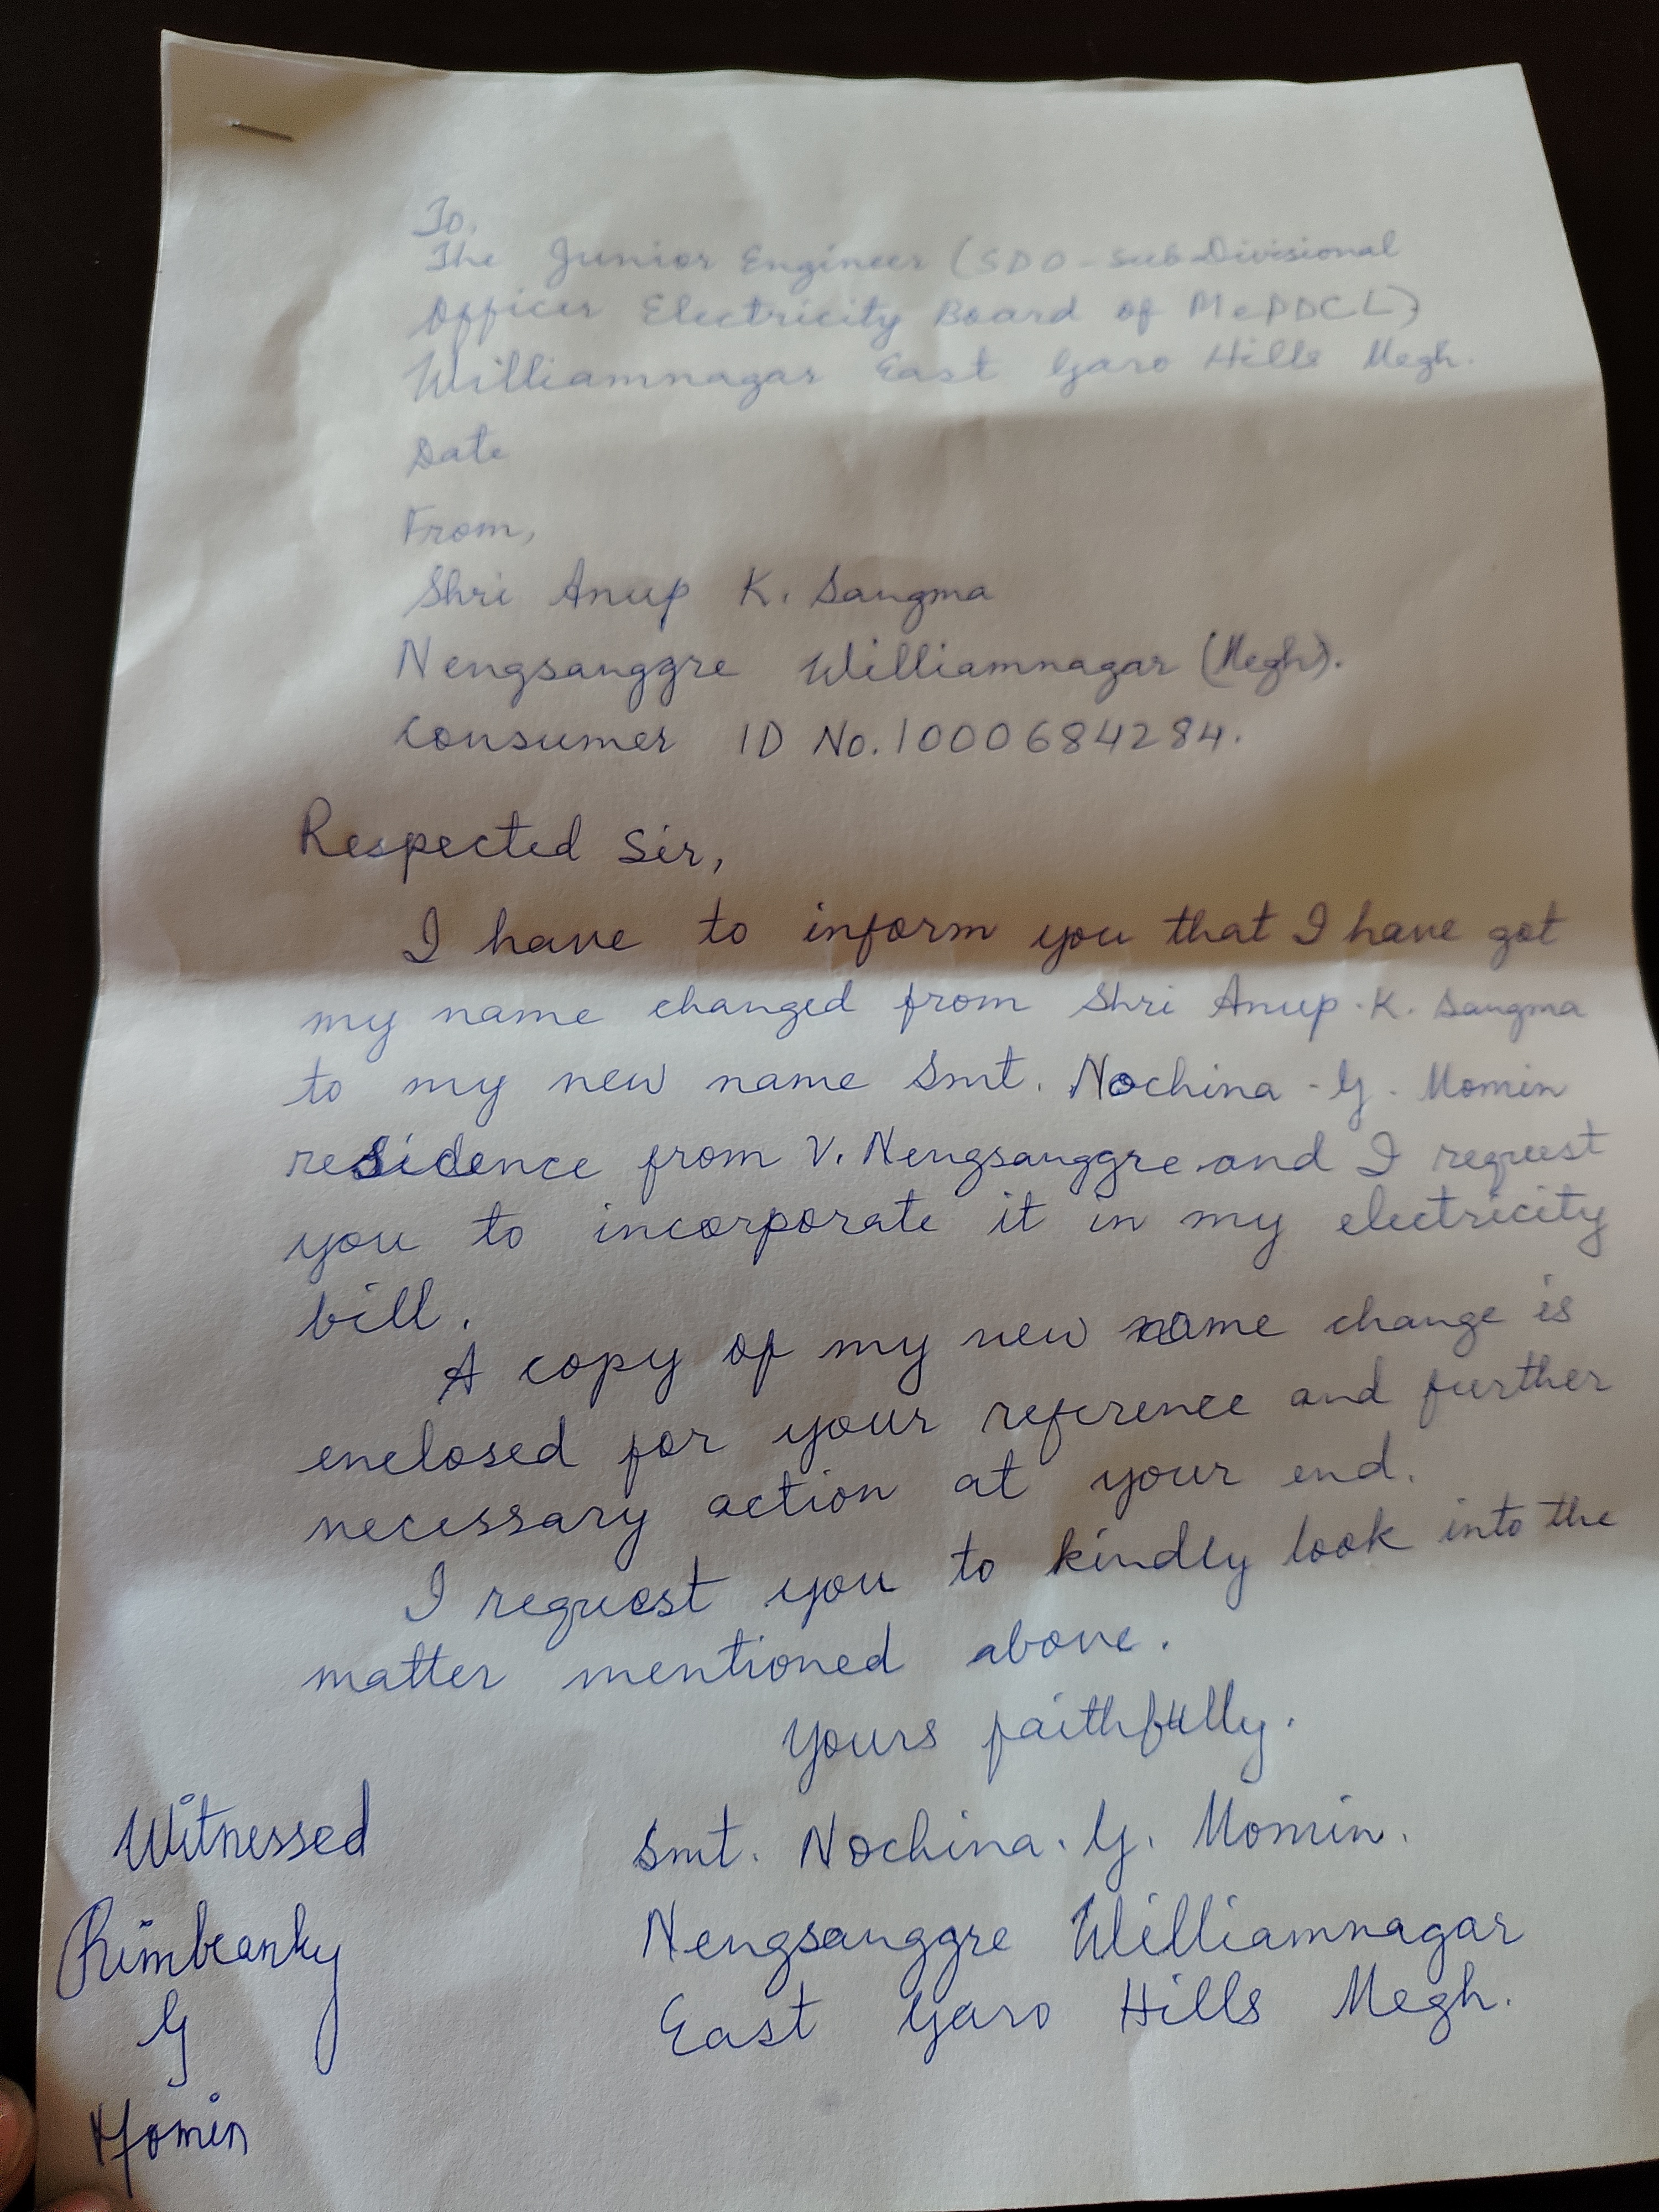 To,
The Junior Engineer (SDO - Sub Divisional
Officer Electricity Board of MePDCL)
Williamnagar East Garo Hills Megh.
Date
From,
Shri Anup K. Sangma
Nengsanggre Williamnagar (Megh).
Consumer ID No. 1000684284.
Respected Sir,
I have to inform you that I have got
my name changed from Shri Anup. K. Sangma
to my new name Smt. Nochina - G. Momin
residence from V. Nengsanggre and I request
you to incorporate it in my electricity
bill.
A copy of my new name change is
enclosed for your reference and further
necessary action at your end.
I request you to kindly look into the
matter mentioned above.
Yours faithfully.
Smt. Nochina. G. Momin.
Nengsanggre Williamnagar
East Garo Hills Megh.
Witnessed
G
Momin